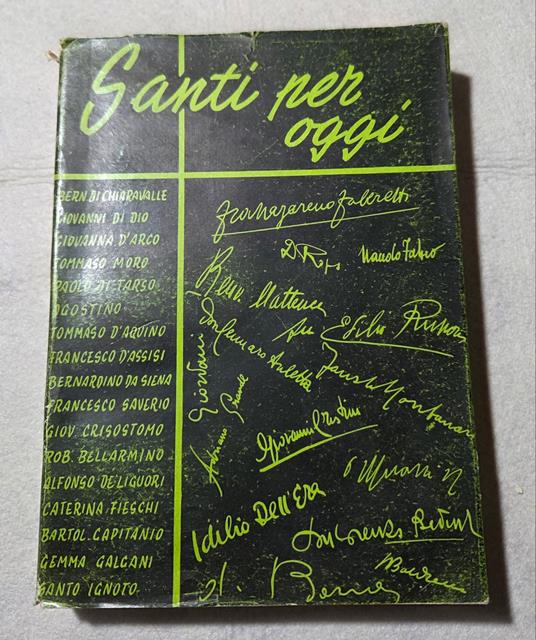 Santi per
oggi
BERN. DI CHIARAVALLE
GIOVANNI DI DIO
GIOVANNA D'ARCO
TOMMASO MORO
PAOLO DI TARSO
AGOSTINO
TOMMASO D'AQUINO
FRANCESCO D'ASSISI
BERNARDINO DA SIENA
FRANCESCO SAVERIO
GIOV. CRISOSTOMO
ROB. BELLARMINO
ALFONSO DE LIGUORI
CATERINA FIESCHI
BARTOL. CAPITANIO
GEMMA GALGANI
SANTO IGNOTO
Nazareno Fabbretti
D. Rops
Nando Fabro
Benv. Matteucci
don Gennaro Auletta
Fausto Montanari
Giovanni Cristini
Idilio Dell'Era
don Lorenzo Bedeschi